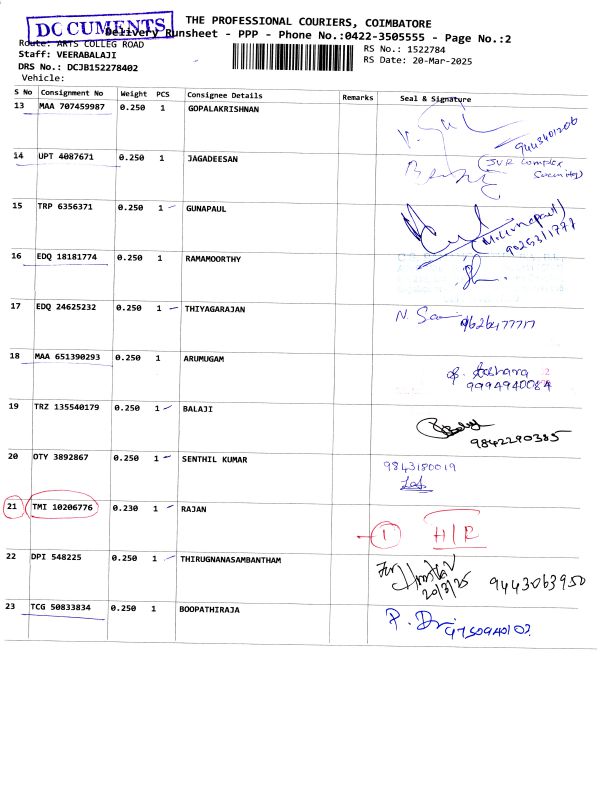 DOCUMENTS
THE PROFESSIONAL COURIERS, COIMBATORE
Delivery Runsheet - PPP - Phone No.:0422-3505555 - Page No.:2
Route: ARTS COLLEG ROAD
Staff: VEERABALAJI
DRS No.: DCJB152278402
Vehicle:
RS No.: 1522784
RS Date: 20-Mar-2025
S No Consignment No Weight PCS Consignee Details Remarks Seal & Signature
13 MAA 707459987 0.250 1 GOPALAKRISHNAN
9443401206
14 UPT 4087671 0.250 1 JAGADEESAN
SVR Complex
15 TRP 6356371 0.250 1 GUNAPAUL
16 EDQ 18181774 0.250 1 RAMAMOORTHY
17 EDQ 24625232 0.250 1 THIYAGARAJAN
18 MAA 651390293 0.250 1 ARUMUGAM
9994940084
19 TRZ 135540179 0.250 1 BALAJI
9842290385
20 OTY 3892867 0.250 1 SENTHIL KUMAR 9843180019
21 TMI 10206776 0.230 1 RAJAN
1 H/R
22 DPI 548225 0.250 1 THIRUGNANASAMBANTHAM
20/3/25 9443063950
23 TCG 50833834 0.250 1 BOOPATHIRAJA